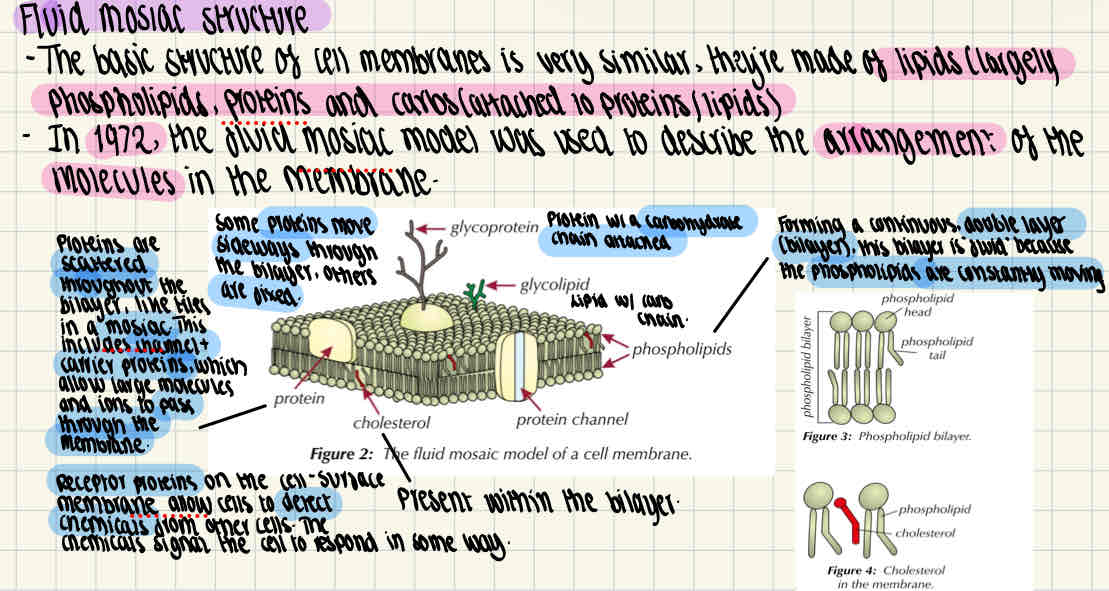 Fluid mosiac structure
- The basic structure of cell membranes is very similar, they're made of lipids (largely
phospholipids, proteins and carbs (attached to proteins/lipids)
- In 1972, the fluid mosiac model was used to describe the arrangement of the
molecules in the membrane.
Proteins are
scattered
throughout the
bilayer, like tiles
in a mosiac. This
includes channel +
carrier proteins, which
allow large molecules
and ions to pass
through the
membrane.
Some proteins move
sideways through
the bilayer, others
are fixed.
glycoprotein
Protein w/ a carbohydrate
chain attached
glycolipid
Lipid w/ carb
chain.
phospholipids
protein
cholesterol
protein channel
Figure 2: The fluid mosaic model of a cell membrane.
Forming a continuous, double layer
(bilayer), this bilayer is 'fluid' because
the phospholipids are constantly moving
phospholipid
head
phospholipid
tail
phospholipid bilayer
Figure 3: Phospholipid bilayer.
Receptor proteins on the cell-surface
membrane allow cells to detect
chemicals from other cells. The
chemicals signal the cell to respond in some way.
Present within the bilayer.
phospholipid
cholesterol
Figure 4: Cholesterol
in the membrane.